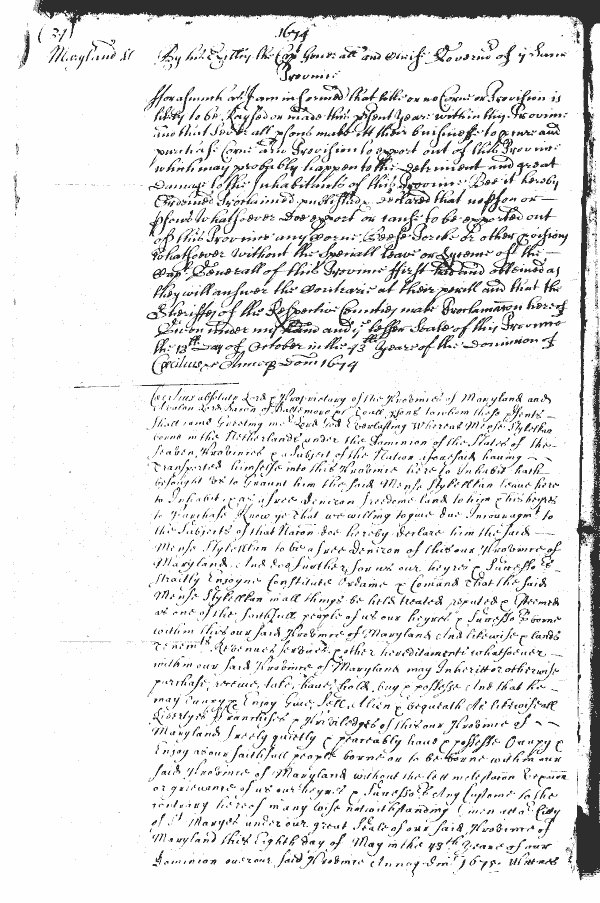 (34) 1674
Maryland ss By his Excellcy the Capt Generall and Cheife Governor of ye same
Province
Fforasmuch as I am informed that little or no Corne or Provision is
likely to be raysed or made this psent Yeare within this Province
and that severall psons make itt their buisinesse to procure and
purchase Corne and Provision to export out of this Province
which may probably happen to the detriment and great
Damage to the Inhabitants of this Province Bee it hereby
Ordained Proclaimed published & declared that no pson or
psons Whatsoever Doe export or cause to be exported out
of this Province any Corne Beefe Porke or other pvisions
whatsoever without the Speciall leave or Lycence of the
Capt Generall of this Province ffirst had and obteined as
they will answer the Contrarie at their perill and that the
Sheriffes of the Respective Countyes make Proclamation hereof
Given under my Hand and ye lesser Seale of this Province
the 13th day of October in the 43th Yeare of the dominion of
Cæcilius &c Annoq Dom 1674
Cæcilius absolute Lord & Proprietary of the Province of Maryland and
Avalon Lord Baron of Baltemore &c To all psons to whom these psents
shall come Greeting in Lord God Everlasting Whereas Minse Stykellan
borne in the Netherlands under the Dominion of the States of the
seaven Provinces & a subject of the Nation aforesaid having
Transported himselfe into this Province here to Inhabit hath
besought us to Graunt him the said Mense Stykellan leave here
to Inhabit & as a free Denizon freedome land to him & his heyres
to Purchase Know ye That we willing to give due Incouragmt to
the subjects of that Nation doe hereby declare him the said
Mense Stykellan to be a free Denizon of this our Province of
Maryland And doe further for us our heyres & Successors
straitly Enjoyne Constitute Ordaine & Comand That the said
Mense Stykellan in all things be held treated reputed & Esteemed
as one of the faithfull people of us our heyres & Successors borne
within this our said Province of Maryland And likewise & lands
Tenemts Revenues services & other hereditaments whatsoever
within our said Province of Maryland may Inherit or otherwise
purchase receive take have hold buy & possesse And that he
may Occupy & Enjoy Give Sell Alien & bequeath As likewise all
Libertyes Franchises & Priviledges of this our Province of
Maryland freely quietly & peaceably have & possesse Occupy &
Enjoy as our faithfull people borne or to be borne within our
said Province of Maryland without the lett molestation Vexation
or grievance of us our heyres & Successors Any Custome to the
contrary hereof in any wise notwithstanding Given att Citty
of St Maryes under our great Seale of our said Province of
Maryland this Eighth day of May in the 43th Yeare of our
Dominion over our said Province Annoq Dm 1675 Witnes